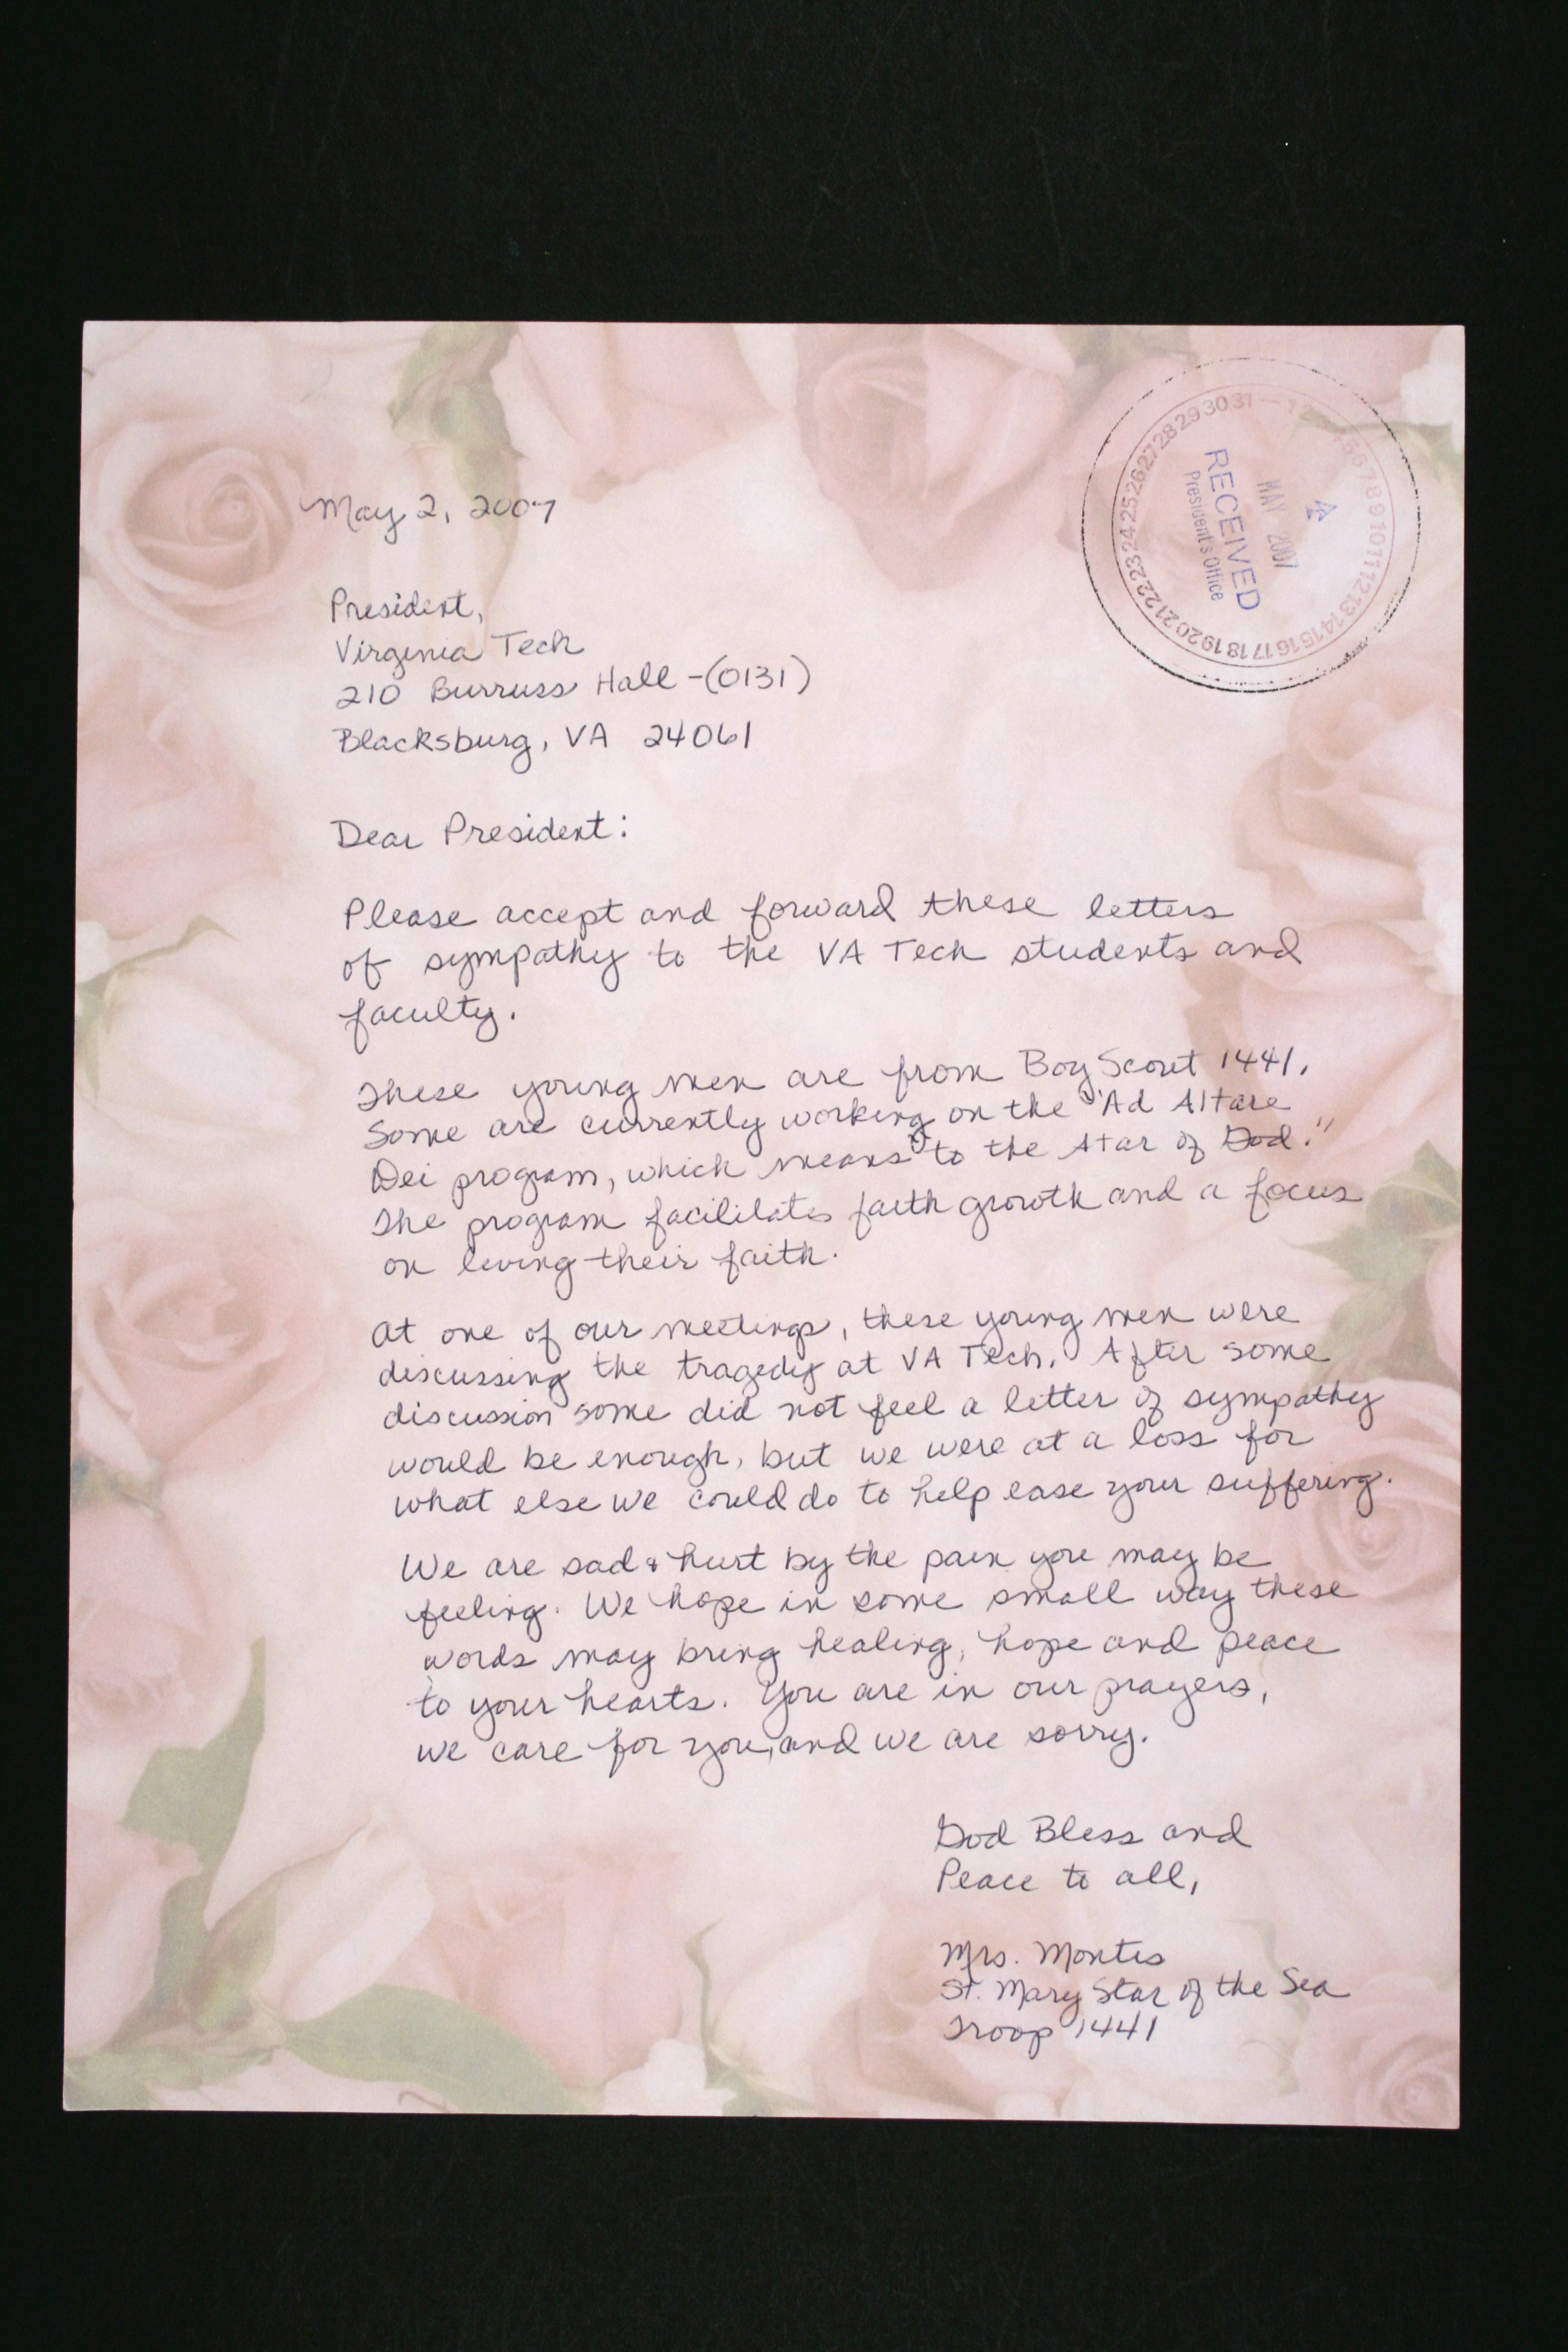 May 2, 2007
RECEIVED
MAY 2007
President's Office
President,
Virginia Tech
210 Burruss Hall -(0131)
Blacksburg, VA 24061
Dear President:
Please accept and forward these letters
of sympathy to the VA Tech students and
faculty.
These young men are from Boy Scout 1441.
Some are currently working on the "Ad Altare
Dei program, which means "to the Atar of God."
The program facililates faith growth and a focus
on living their faith.
At one of our meetings, these young men were
discussing the tragedy at VA Tech. After some
discussion some did not feel a letter of sympathy
would be enough, but we were at a loss for
what else we could do to help ease your suffering.
We are sad & hurt by the pain you may be
feeling. We hope in some small way these
words may bring healing, hope and peace
to your hearts. You are in our prayers,
we care for you, and we are sorry.
God Bless and
Peace to all,
Mrs. Montes
St. Mary Star of the Sea
Troop 1441